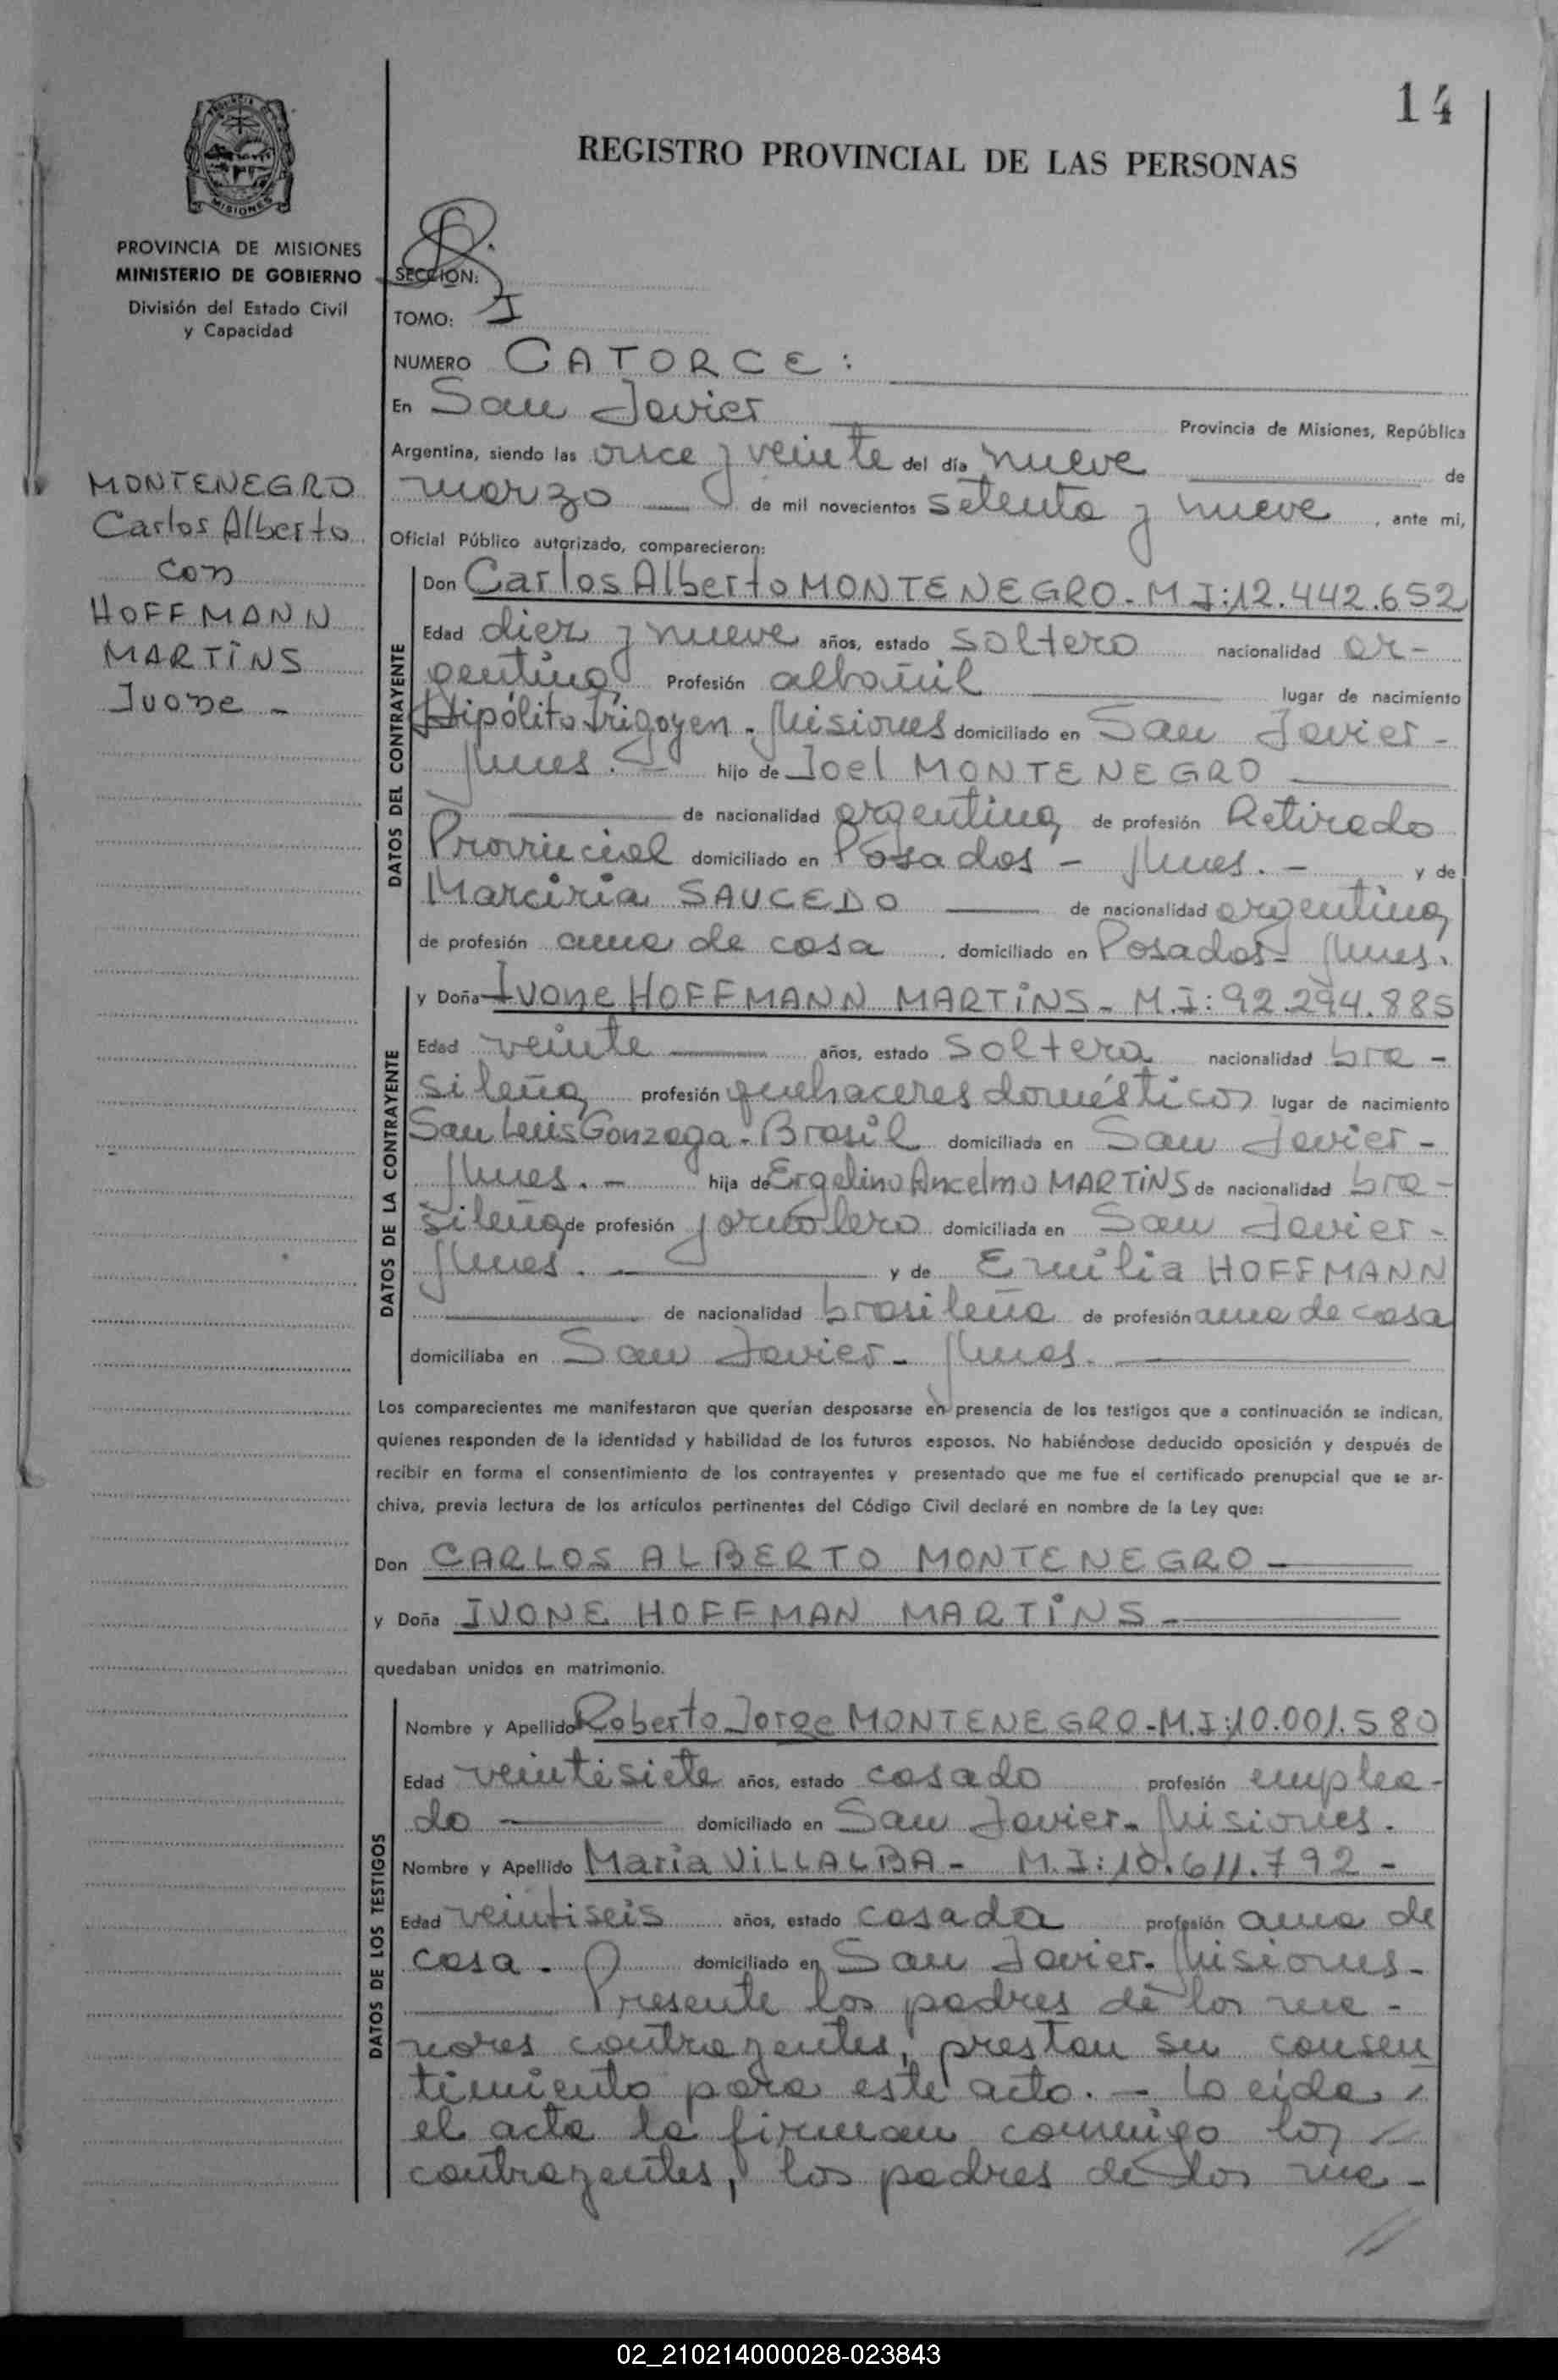 14
REGISTRO PROVINCIAL DE LAS PERSONAS
MISIONES
PROVINCIA DE MISIONES
MINISTERIO DE GOBIERNO
División del Estado Civil
y Capacidad
MONTENEGRO
Carlos Alberto
con
HOFFMANN
MARTINS
Ivone -
SECCION:
TOMO: I
NUMERO CATORCE:
En San Javier Provincia de Misiones, República
Argentina, siendo las once y veinte del día nueve de
marzo de mil novecientos setenta y nueve, ante mi,
Oficial Público autorizado, comparecieron:
DATOS DEL CONTRAYENTE
Don Carlos Alberto MONTENEGRO - M.I:12.442.652
Edad diez y nueve años, estado soltero nacionalidad ar-
gentina, Profesión albañil lugar de nacimiento
Hipólito Irigoyen - Misiones domiciliado en San Javier -
Mnes. - hijo de Joel MONTENEGRO
de nacionalidad argentina, de profesión Retirado
Provincial domiciliado en Posadas - Mnes. - y de
Marciria SAUCEDO de nacionalidad argentina,
de profesión ama de casa, domiciliado en Posadas - Mnes.
DATOS DE LA CONTRAYENTE
y Doña Ivone HOFFMANN MARTINS - M.I: 92.294.885
Edad veinte años, estado soltera nacionalidad bra-
sileña, profesión quehaceres domésticos lugar de nacimiento
San Luis Gonzaga - Brasil domiciliada en San Javier -
Mnes. - hija de Ergelino Ancelmo MARTINS de nacionalidad bra-
sileña, de profesión jornalero domiciliada en San Javier -
Mnes. y de Emilia HOFFMANN
de nacionalidad brasileña de profesión ama de casa
domiciliaba en San Javier - Mnes.
Los comparecientes me manifestaron que querían desposarse en presencia de los testigos que a continuación se indican,
quienes responden de la identidad y habilidad de los futuros esposos. No habiéndose deducido oposición y después de
recibir en forma el consentimiento de los contrayentes y presentado que me fue el certificado prenupcial que se ar-
chiva, previa lectura de los artículos pertinentes del Código Civil declaré en nombre de la Ley que:
Don CARLOS ALBERTO MONTENEGRO -
y Doña IVONE HOFFMAN MARTINS -
quedaban unidos en matrimonio.
DATOS DE LOS TESTIGOS
Nombre y Apellido Roberto Jorge MONTENEGRO - M.I:10.001.580
Edad veintisiete años, estado casado profesión emplea-
do domiciliado en San Javier - Misiones.
Nombre y Apellido Maria VILLALBA - M.I: 10.611.792 -
Edad veintiseis años, estado casada profesión ama de
casa. domiciliado en San Javier - Misiones -
Presente los padres de los me-
nores contrayentes, prestan su consen
timiento para este acto. - Leida
el acta la firman conmigo los
contrayentes, los padres de los me-
02_210214000028-023843